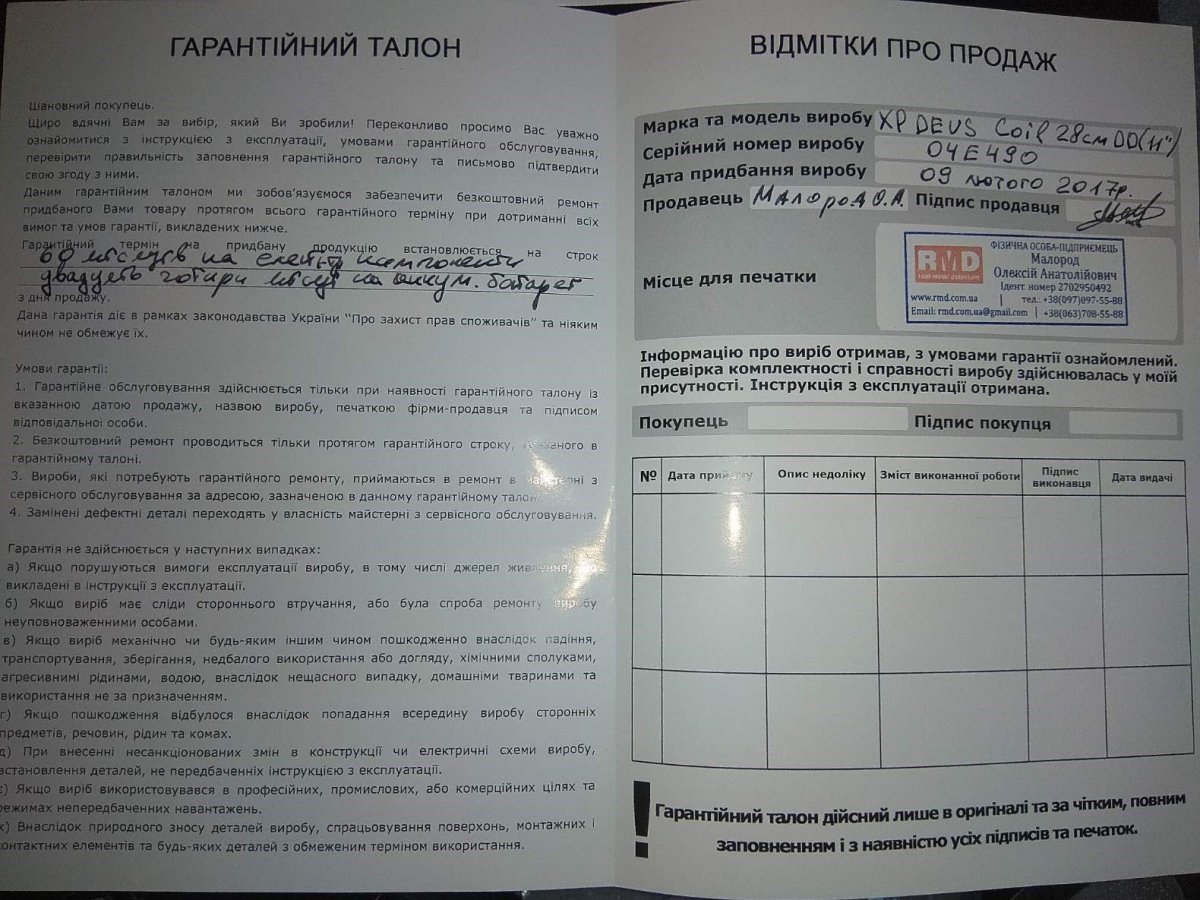 ГАРАНТІЙНИЙ ТАЛОН
Шановний покупець.
Щиро вдячні Вам за вибір, який Ви зробили! Переконливо просимо Вас уважно
ознайомитися з інструкцією з експлуатації, умовами гарантійного обслуговування,
перевірити правильність заповнення гарантійного талону та письмово підтвердити
свою згоду з ними.
Даним гарантійним талоном ми зобов’язуємося забезпечити безкоштовний ремонт
придбаного Вами товару протягом всього гарантійного терміну при дотриманні всіх
вимог та умов гарантії, викладених нижче.
Гарантійний термін на придбану продукцію встановлюється на строк
60 місяців на електр компоненти
двадцять чотири місяці на акум. батареї
з дня продажу.
Дана гарантія діє в рамках законодавства України “Про захист прав споживачів” та ніяким
чином не обмежує їх.
Умови гарантії:
1. Гарантійне обслуговування здійснюється тільки при наявності гарантійного талону із
вказанною датою продажу, назвою виробу, печаткою фірми-продавця та підписом
відповідальної особи.
2. Безкоштовний ремонт проводиться тільки протягом гарантійного строку, в
гарантійному талоні.
3. Вироби, які потребують гарантійного ремонту, приймаються в ремонт в майстерні з
сервісного обслуговування за адресою, зазначеною в данному гарантійному талоні.
4. Замінені дефектні деталі переходять у власність майстерні з сервісного обслуговування.
Гарантія не здійснюється у наступних випадках:
а) Якщо порушуються вимоги експлуатації виробу, в тому числі джерел живлення, що
викладені в інструкції з експлуатації.
б) Якщо виріб має сліди стороннього втручання, або була спроба ремонту виробу
неуповноваженними особами.
в) Якщо виріб механічно чи будь-яким іншим чином пошкодженно внаслідок падіння,
транспортування, зберігання, недбалого використання або догляду, хімічними сполуками,
агресивнимі рідинами, водою, внаслідок нещасного випадку, домашніми тваринами та
використання не за призначенням.
г) Якщо пошкодження відбулося внаслідок попадання всередину виробу сторонніх
предметів, речовин, рідин та комах.
д) При внесенні несанкціонованих змін в конструкції чи електричні схеми виробу,
встановлення деталей, не передбаченніх інструкцією з експлуатації.
є) Якщо виріб використовувався в професійних, промислових, або комерційних цілях та
режимах непередбаченних навантажень.
ж) Внаслідок природного зносу деталей виробу, спрацьовування поверхонь, монтажних і
контактних елементів та будь-яких деталей з обмеженим терміном використання.
ВІДМІТКИ ПРО ПРОДАЖ
Марка та модель виробу XP DEUS Coil 28см DD(11")
Серійний номер виробу 04E490
Дата придбання виробу 09 лютого 2017р.
Продавець Малород О.А. Підпис продавця
Місце для печатки
RMD
real metal detectors
ФІЗИЧНА ОСОБА-ПІДПРИЄМЕЦЬ
Малород
Олексій Анатолійович
Ідент. номер 2702950492
www.rmd.com.ua | тел.: +38(097)097-55-88
Email: rmd.com.ua@gmail.com | +38(063)708-55-88
Інформацію про виріб отримав, з умовами гарантії ознайомлений.
Перевірка комплектності і справності виробу здійснювалась у моїй
присутності. Інструкція з експлуатації отримана.
Покупець Підпис покупця
№ Дата прийому Опис недоліку Зміст виконанної роботи Підпис виконавця Дата видачі
! Гарантійний талон дійсний лише в оригіналі та за чітким, повним
заповненням і з наявністю усіх підписів та печаток.